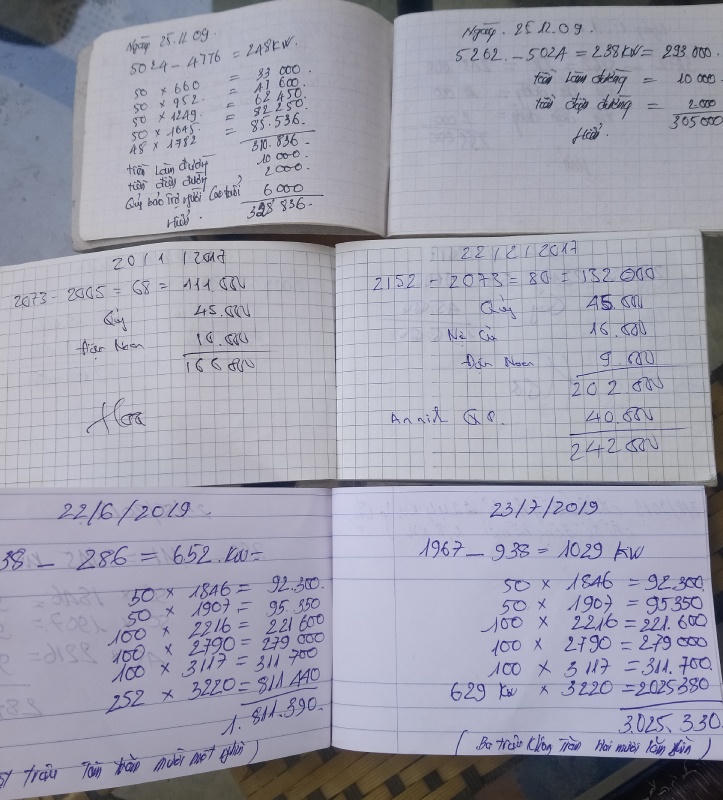 Ngày 25.12.09.
5024 - 4776 = 248 KW.
50 × 660 = 33 000.
50 × 952. = 47 600.
50 × 1249. = 62 450.
50 × 1845. = 92 250.
48 × 1782 = 85.536.
310.836.
tiền Làm đường 10 000.
tiền điện đường 2 000.
Qũy bảo trợ người Cao tuổi 6 000
328 836.
Hiếu.
Ngày. 25.12.09.
5262. - 5024 = 238KW = 293 000.
tiền Làm đường = 10 000.
tiền điện đường = 2.000
Hiếu. 305 000
20/1/2017
2073 - 2005 = 68 = 111.000
Qũy 45.000
Điện 10.000
166 000
22/2/2017
2152 - 2073 = 80 = 132 000
Qũy 45.000
16.000
Điện 9.000
202 000
40.000
242 000
22/6/2019.
38 - 286 = 652. KW =
50 × 1846 = 92.300.
50 × 1907 = 95.350
100 × 2216 = 221 600
100 × 2790 = 279 000
100 × 3117 = 311 700
252 × 3220 = 811 440
1.811.390.
triệu Tám trăm mười một nghìn )
23/7/2019
1967 - 938 = 1029 KW
50 × 1846 = 92.300.
50 × 1907 = 95350
100 × 2216 = 221.600
100 × 2790 = 279 000
100 × 3117 = 311.700.
629 KW × 3220 = 2025380
3.025.330
( Ba triệu Không Trăm Hai mươi Lăm ghìn )